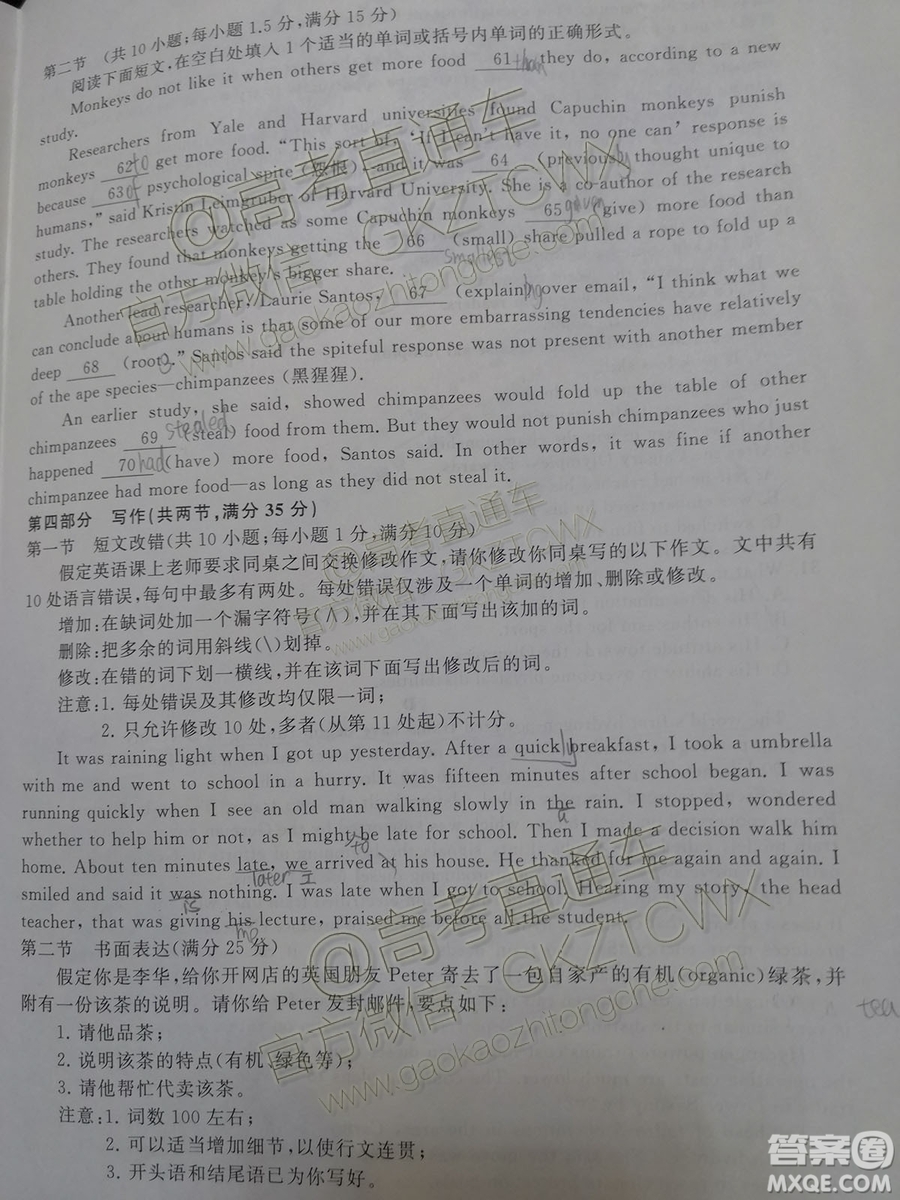 第二节 (共10小题;每小题1.5分,满分15分)
阅读下面短文,在空白处填入1个适当的单词或括号内单词的正确形式。
Monkeys do not like it when others get more food 61 than they do, according to a new
study.
Researchers from Yale and Harvard universities found Capuchin monkeys punish
monkeys 62 to get more food. "This sort of, 'If I can't have it, no one can' response is
because 63 of psychological spite (怨恨) and it was 64 (previous)ly thought unique to
humans," said Kristin Leimgruber of Harvard University. She is a co-author of the research
study. The researchers watched as some Capuchin monkeys 65 given (give) more food than
others. They found that monkeys getting the 66 (small) share pulled a rope to fold up a
table holding the other monkey's bigger share.
Another lead researcher, Laurie Santos, 67 (explain)ing over email, "I think what we
can conclude about humans is that some of our more embarrassing tendencies have relatively
deep 68 (root)." Santos said the spiteful response was not present with another member
of the ape species—chimpanzees (黑猩猩).
An earlier study, she said, showed chimpanzees would fold up the table of other
chimpanzees 69 stealed (steal) food from them. But they would not punish chimpanzees who just
happened 70 had (have) more food, Santos said. In other words, it was fine if another
chimpanzee had more food—as long as they did not steal it.
第四部分 写作(共两节,满分35分)
第一节 短文改错(共10小题;每小题1分,满分10分)
假定英语课上老师要求同桌之间交换修改作文,请你修改你同桌写的以下作文。文中共有
10处语言错误,每句中最多有两处。每处错误仅涉及一个单词的增加、删除或修改。
增加:在缺词处加一个漏字符号(∧),并在其下面写出该加的词。
删除:把多余的词用斜线(\)划掉。
修改:在错的词下划一横线,并在该词下面写出修改后的词。
注意:1. 每处错误及其修改均仅限一词;
2. 只允许修改10处,多者(从第11处起)不计分。
It was raining light when I got up yesterday. After a quick ly breakfast, I took a umbrella
with me and went to school in a hurry. It was fifteen minutes after school began. I was
running quickly when I see an old man walking slowly in the rain. I stopped, wondered
a
whether to help him or not, as I might be late for school. Then I made a decision walk him
to
home. About ten minutes late, we arrived at his house. He thanked for me again and again. I
later I
smiled and said it was nothing. I was late when I got to school. Hearing my story, the head
is
teacher, that was giving his lecture, praised me before all the student.
第二节 书面表达(满分25分)
假定你是李华,给你开网店的英国朋友Peter寄去了一包自家产的有机(organic)绿茶,并
附有一份该茶的说明。请你给Peter发封邮件,要点如下:
tea
1. 请他品茶;
2. 说明该茶的特点(有机、绿色等);
3. 请他帮忙代卖该茶。
注意:1. 词数100左右;
2. 可以适当增加细节,以使行文连贯;
3. 开头语和结尾语已为你写好。
@高考直通车
官方微信:GKZTCWX
www.gaokaozhitongche.com
@高考直通车
官方微信:GKZTCWX
www.gaokaozhitongche.com
@高考直通车
官方微信:GKZTCWX
www.gaokaozhitongche.com
答案圈
MXQE.COM